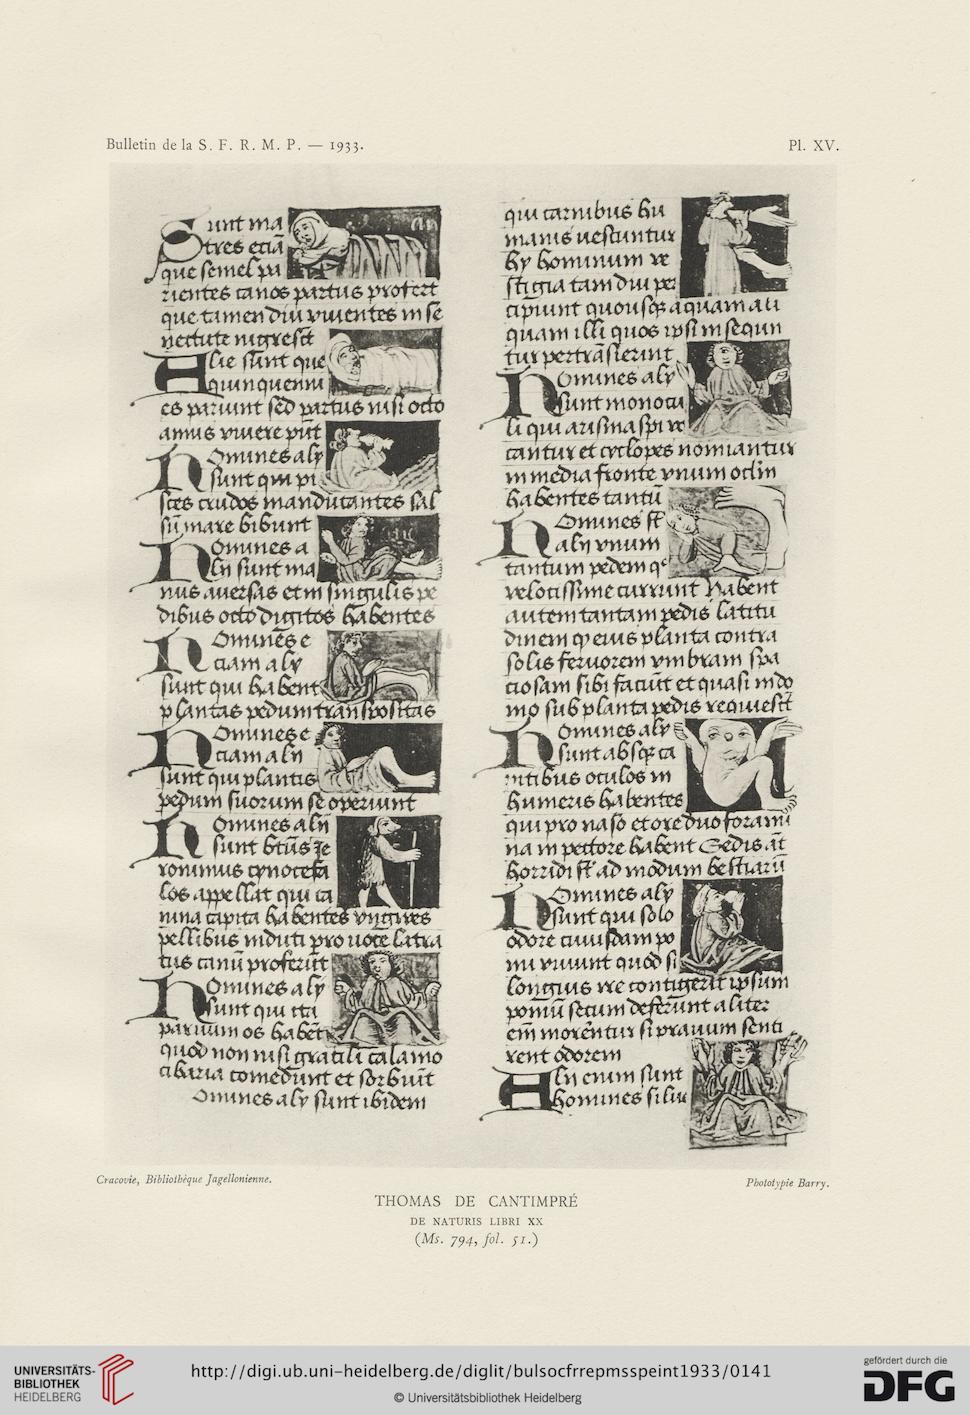 Bulletin de la S. F. R. M. P. — 1933.
Pl. XV.
Sunt ma
tres etiā
que semel pa
rientes canos partus profert
que tamen diu viventes in se
nectute nigrescūt
Alie sūnt que
quinquenni
es pariunt sed partus nisi octo
annis vivere pūt
Homines aly
sunt qui pi
sces crudos manducantes sal
sū mare bibunt
Homines a
lii sunt ma
nus aversas et in singulis pe
dibus octo digitos habentes
Homines e
ciam aly
sunt qui habent
plantas pedum transpositas
Homines e
ciam alii
sunt qui plantis
pedum suorum se operiunt
Homines alii
sunt btūs Je
ronimus cynocefa
los appellat qui ca
nina capita habentes ungues
pellibus induti pro voce latra
tus canū proferūt
Homines aly
sunt qui ita
parvum os habēt
quod non nisi gracili calamo
cibaria comedunt et sorbuīt
Omines aly sunt ibidem
qui carnibus hu
manis vescuntur
hy hominum ve
stigia tam diu per
cipiunt quousqꝫ aquam ali
quam illi quos ipsi insequn
tur pertrāsierint
Homines aly
sunt monocu
li qui arismaspi vo
cantur et cyclopes nomiantur
in media fronte unum oclm
habentes tantū
Homines st̄
alii unum
tantum pedem qͥ
velocissime currunt habent
autem tantam pedis latitu
dinem qͥ eius planta contra
solis fervorem umbram spa
ciosam sibi faciūt et quasi in do
mo sub planta pedis requiescūt
Homines aly
sunt absqꝫ ca
pitibus oculos in
humeris habentes
qui pro naso et ore duo forami
na in pectore habent Sedis at̄
horridi st̄ ad modum bestiarū
Homines aly
sunt qui solo
odore cuiusdam po
mi vivunt quod si
longius ire contigerit ipsum
pomū secum deferunt aliter
em̄ morentur si pravum senti
rent odorem
Alii enim sunt
homines silve
Cracovie, Bibliothèque Jagellonienne.
Phototypie Barry.
THOMAS DE CANTIMPRÉ
DE NATURIS LIBRI XX
(Ms. 794, fol. 51.)
UNIVERSITÄTS-
BIBLIOTHEK
HEIDELBERG
http://digi.ub.uni-heidelberg.de/diglit/bulsocfrrepmsspeint1933/0141
© Universitätsbibliothek Heidelberg
gefördert durch die
DFG